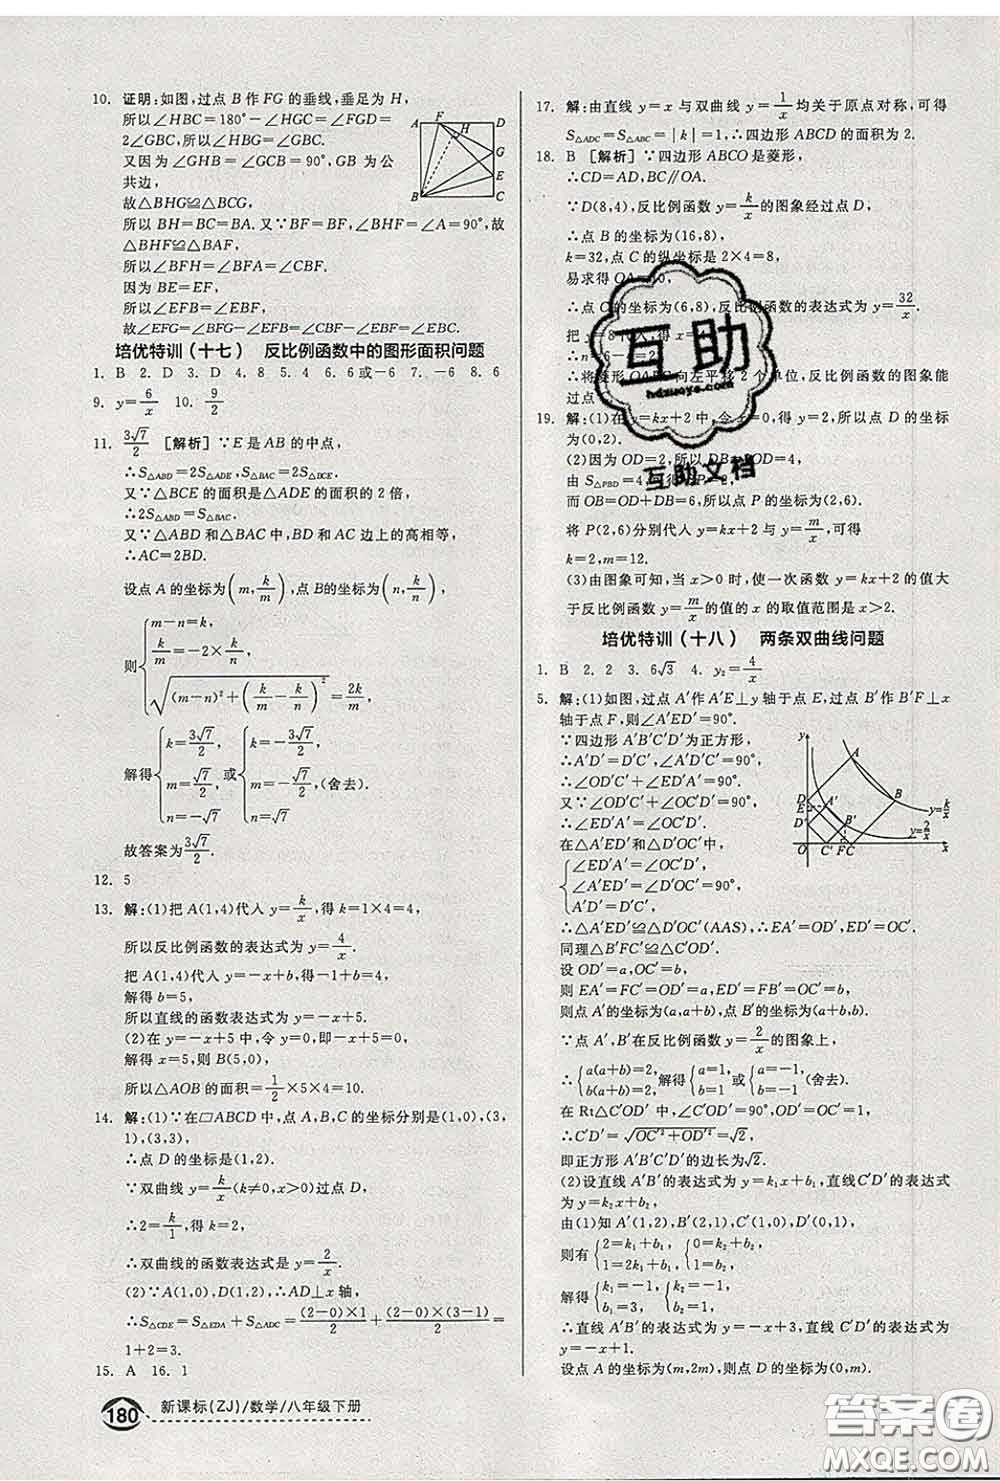 10. 证明:如图,过点 B 作 FG 的垂线,垂足为 H,
所以∠HBC=180°-∠HGC=∠FGD=
2∠GBC,所以∠HBG=∠GBC.
又因为∠GHB=∠GCB=90°,GB 为公
共边,
故△BHG≌△BCG,
所以 BH=BC=BA. 又∵BF=BF,∠BHF=∠A=90°,故
△BHF≌△BAF,
所以∠BFH=∠BFA=∠FBC.
因为 BE=EF,
所以∠EFB=∠EBF,
故∠EFG=∠BFG-∠EFB=∠FBC-∠EBF=∠EBC.
A F D H G E B C
培优特训(十七) 反比例函数中的图形面积问题
1. B 2. D 3. D 4. 8 5. 4 6. 6或-6 7. -6 8. 6
9. y=6/x 10. 9/2
11. 3√7/2 [解析]∵E 是 AB 的中点,
∴S△ABD=2S△ADE,S△BAC=2S△BCE.
又∵△BCE 的面积是△ADE 的面积的 2 倍,
∴2S△ABD=S△BAC.
又∵△ABD 和△BAC 中,BD 和 AC 边上的高相等,
∴AC=2BD.
设点 A 的坐标为(m,k/m),点 B的坐标为(n,k/n),
则{m-n=k,
k/m=-2×k/n,
√((m-n)²+(k/m-k/n)²)=2k/m,
解得{k=3√7/2, m=√7/2, n=-√7 或{k=-3√7/2, m=-√7/2, n=√7 (舍去).
故答案为3√7/2.
12. 5
13. 解:(1)把 A(1,4)代入 y=k/x,得 k=1×4=4,
所以反比例函数的表达式为 y=4/x.
把 A(1,4)代入 y=-x+b,得-1+b=4,
解得 b=5,
所以直线的函数表达式为 y=-x+5.
(2)在 y=-x+5 中,令 y=0,得-x+5=0,
解得 x=5,则 B(5,0),
所以△AOB 的面积=1/2×5×4=10.
14. 解:(1)∵在▱ABCD 中,点 A,B,C 的坐标分别是(1,0),(3,
1),(3,3),
∴点 D 的坐标是(1,2).
∵双曲线 y=k/x(k≠0,x>0)过点 D,
∴2=k/1,得 k=2,
∴双曲线的函数表达式是 y=2/x.
(2)∵A(1,0),D(1,2),∴AD⊥x 轴,
∴S△CDE=S△EDA+S△ADC=(2-0)×1/2+(2-0)×(3-1)/2=
1+2=3.
15. A 16. 1
180 新课标(ZJ)/数学/八年级下册
17. 解:由直线 y=x 与双曲线 y=1/x均关于原点对称,可得
S△ADC=S△ABC=|k|=1,∴四边形 ABCD 的面积为 2.
18. B [解析]∵四边形 ABCO 是菱形,
∴CD=AD,BC∥OA.
∵D(8,4),反比例函数 y=k/x的图象经过点 D,
∴点 B 的坐标为(16,8),
k=32,点 C 的纵坐标是 2×4=8,
易求得 OA=10,
∴点 C的坐标为(6,8),反比例函数的表达式为 y=32/x.
把 y=8代入
∴将菱形 OABC向左平移 2 个单位,反比例函数的图象能
过点
19. 解:(1)在 y=kx+2 中,令 x=0,得 y=2,所以点 D 的坐标
为(0,2).
(2)因为 OD=2,所以 DB=2OD=4,
由 S△PBD=4,可得
而 OB=OD+DB=6,所以点 P 的坐标为(2,6).
将 P(2,6)分别代入 y=kx+2 与 y=m/x,可得
k=2,m=12.
(3)由图象可知,当 x>0 时,使一次函数 y=kx+2 的值大
于反比例函数 y=m/x的值的 x 的取值范围是 x>2.
培优特训(十八) 两条双曲线问题
1. B 2. 2 3. 6√3 4. y₂=4/x
5. 解:(1)如图,过点 A′作 A′E⊥y 轴于点 E,过点 B′作 B′F⊥x
轴于点 F,则∠A′ED′=90°.
∵四边形 A′B′C′D′为正方形,
∴A′D′=D′C′,∠A′D′C′=90°,
∴∠OD′C′+∠ED′A′=90°.
又∵∠OD′C′+∠OC′D′=90°,
∴∠ED′A′=∠OC′D′.
在△A′ED′和△D′OC′中,
{∠ED′A′=∠OC′D′,
∠A′ED′=∠D′OC′,
A′D′=D′C′,
∴△A′ED′≌△D′OC′(AAS),∴EA′=OD′,ED′=OC′.
同理△B′FC′≌△C′OD′.
设 OD′=a,OC′=b,
则 EA′=FC′=OD′=a,ED′=FB′=OC′=b,
则点A′的坐标为(a,a+b),点 B′的坐标为(a+b,b).
∵点 A′,B′在反比例函数 y=2/x的图象上,
∴{a(a+b)=2, b(a+b)=2, 解得{a=1, b=1 或{a=-1, b=-1 (舍去).
在 Rt△C′OD′中,∠C′OD′=90°,OD′=OC′=1,
∴C′D′=√(OC′²+OD′²)=√2,
即正方形 A′B′C′D′的边长为√2.
(2)设直线 A′B′的表达式为 y=k₁x+b₁,直线 C′D′的表达式
为 y=k₂x+b₂,
由(1)知 A′(1,2),B′(2,1),C′(1,0),D′(0,1),
则有{2=k₁+b₁, 1=2k₁+b₁, {0=k₂+b₂, 1=b₂,
解得{k₁=-1, b₁=3, {k₂=-1, b₂=1,
∴直线 A′B′的表达式为 y=-x+3,直线 C′D′的表达式为 y=-x+1.
设点 A 的坐标为(m,2m),点 D 的坐标为(0,m).
y A D E A′ B D′ B′ O C′ F C x y=k/x y=2/x
互助
hdzuoye.com
互助文档
答案圈
MXQE.COM